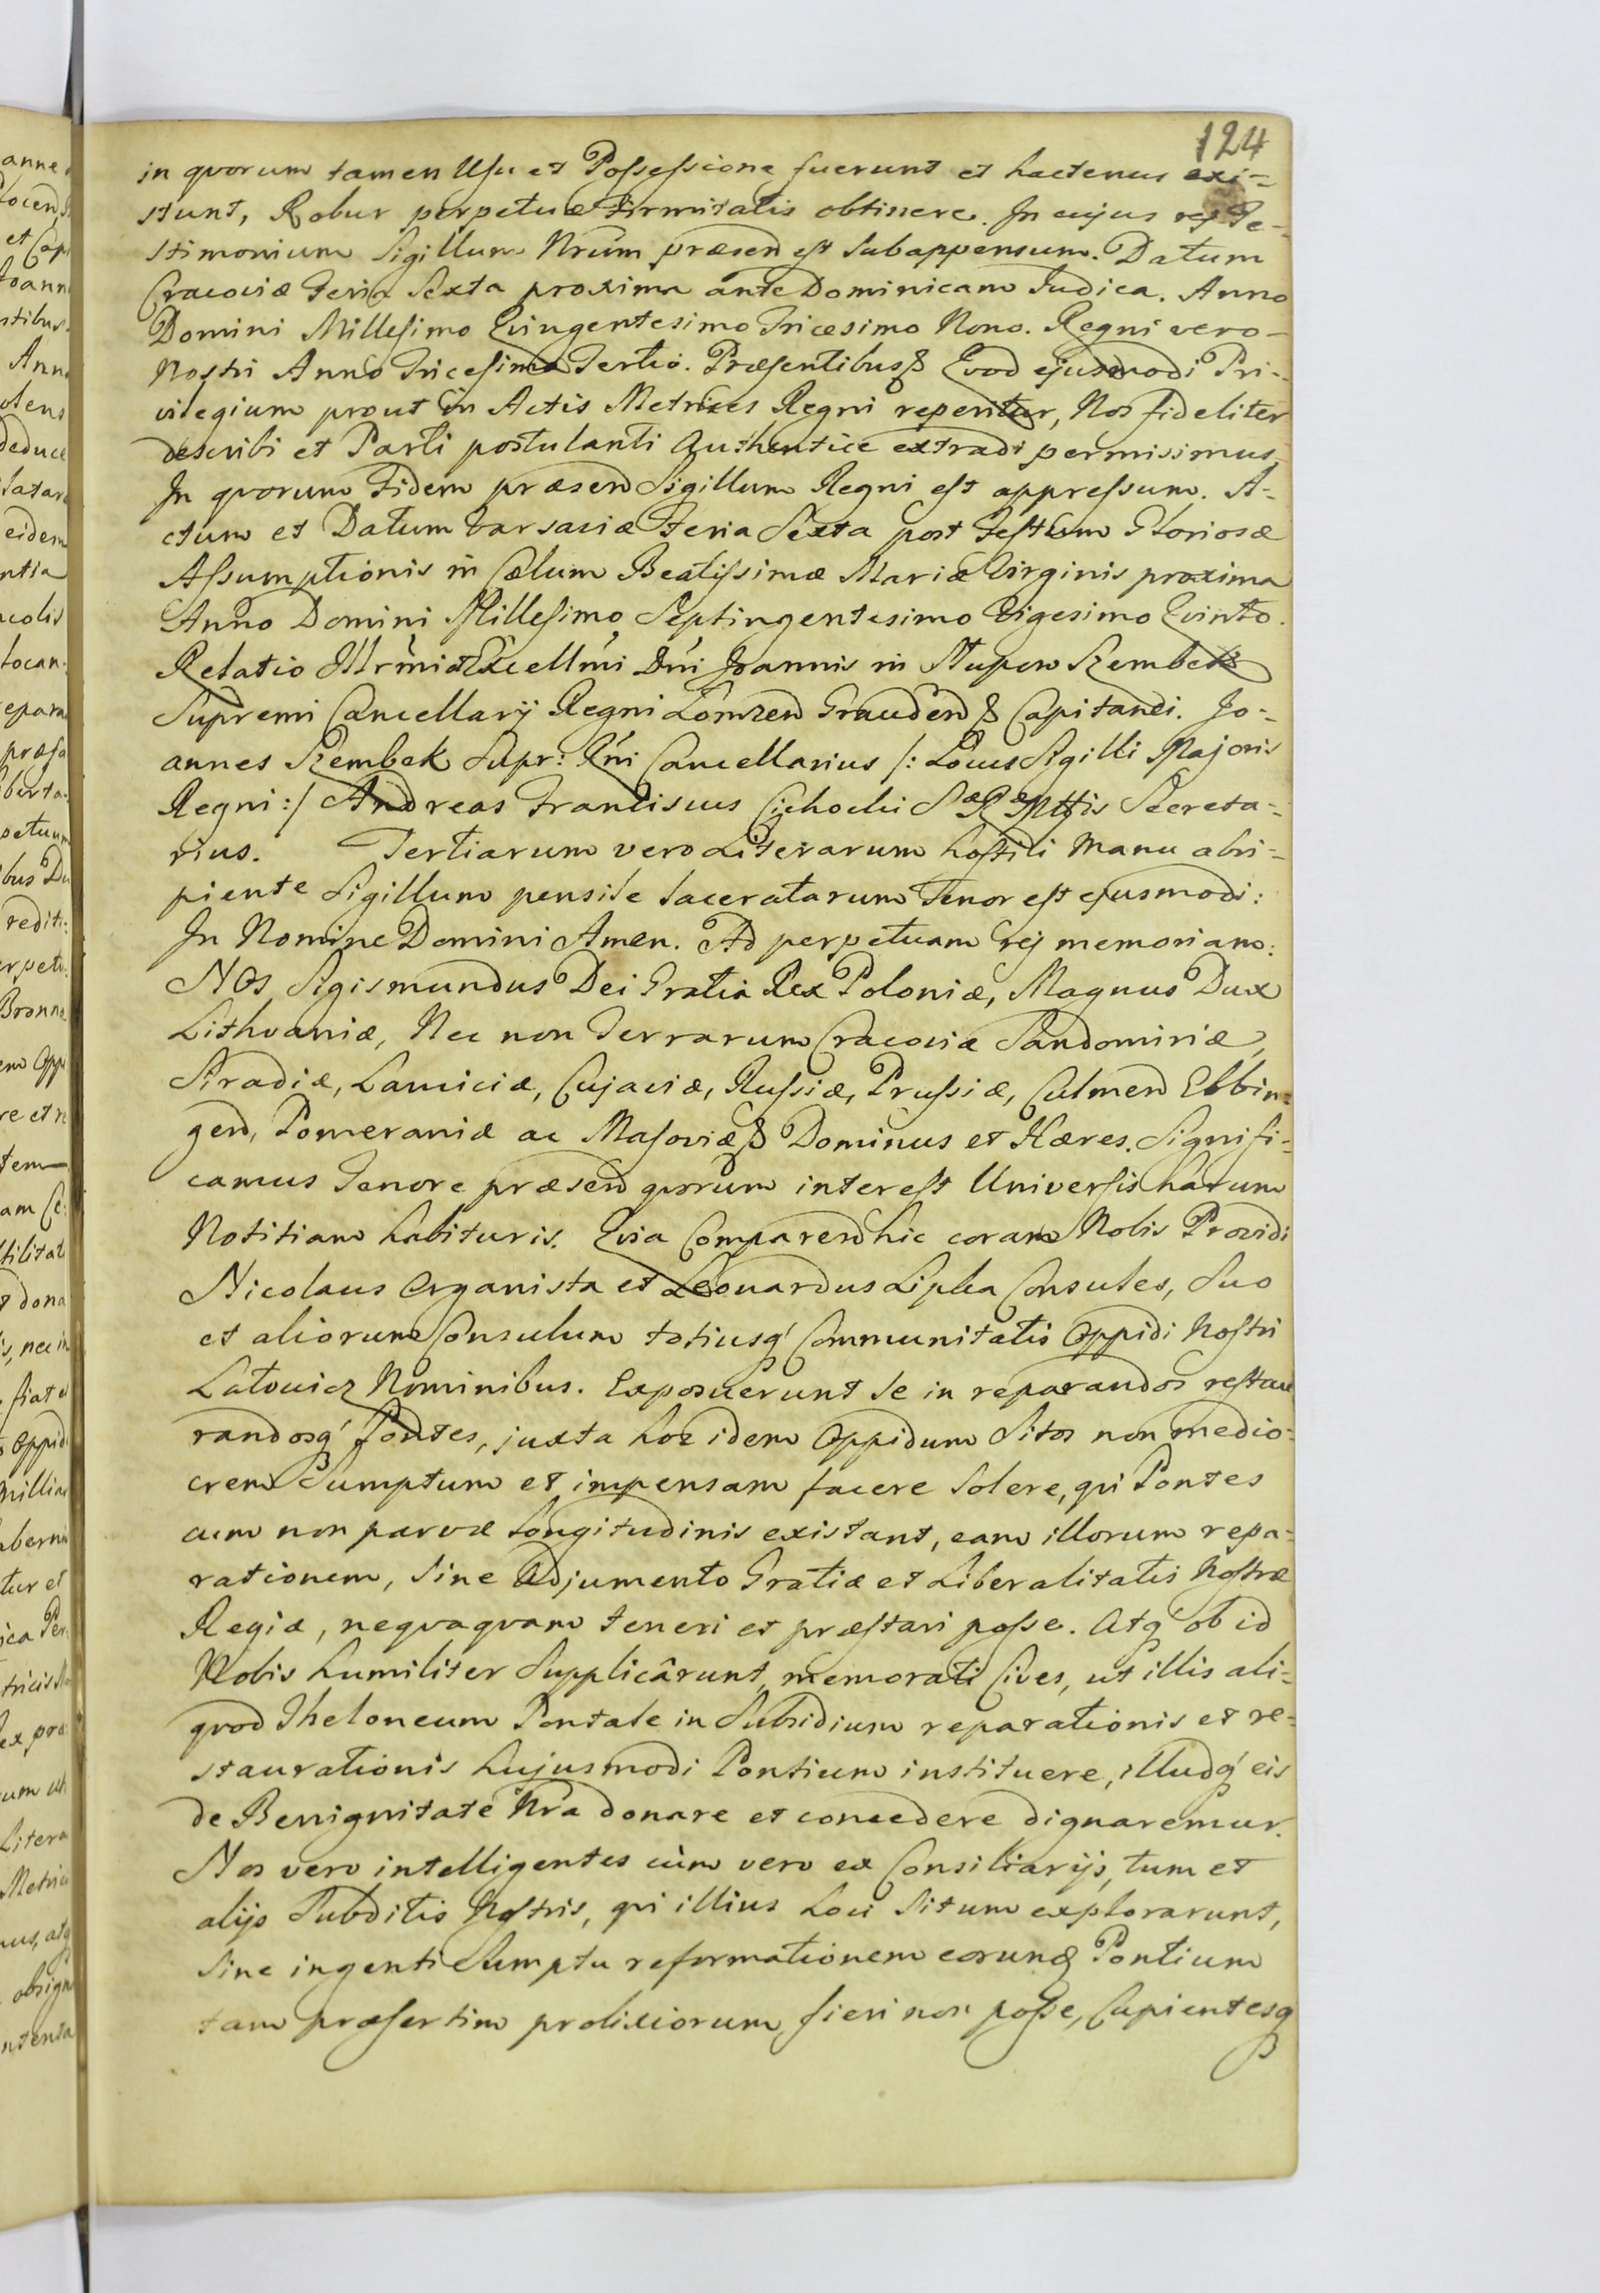 124
in quorum tamen Usu et Possessione fuerunt et hactenus exi=
stunt, Robur perpetuæ Firmitatis obtinere. In cujus rej Te-
stimonium Sigillum Nrum præsen est Subappensum. Datum
Cracoviæ Feria Sexta proxima ante Dominicam Judica. Anno
Domini Millesimo Qvingentesimo Tricesimo Nono. Regni vero-
Nostri Anno Tricesimo Tertio. Præsentibus Qvod ejusmodi Pri-
vilegium prout in Actis Metrices Regni reperitur, Nos fideliter
describi et Parti postulanti Authentice extradi permisimus,
In quorum Fidem præsen Sigillum Regni est appressum. A-
ctum et Datum Varsaviæ Feria Sexta post Festum Gloriosæ
Assumptionis in Cælum Beatissimæ Mariæ Virginis proxima
Anno Domini Millesimo Septingentesimo Vigesimo Qvinto.
Relatio Illrmi et Excellmi Dni Joannis in Slupow Szembek
Supremi Cancellarij Regni Lomzen Grauden Capitanei. Jo-
annes Szembek Supr: Rni Cancellarius /: Locus Sigilli Majoris
Regni :/ Andreas Franciscus Cichocki Sæ Ræ Mttis Secreta-
rius. Tertiarum vero Literarum hostili Manu abri-
piente Sigillum pensile laceratarum Tenor est ejusmodi:
In Nomine Domini Amen. Ad perpetuam rej memoriam:
NOs Sigismundus Dei Gratia Rex Poloniæ, Magnus Dux
Lithvaniæ, Nec non Terrarum Cracoviæ Sandomiriæ,
Siradiæ, Lanciciæ, Cujaviæ, Russiæ, Prussiæ, Culmen Elbin=
gen, Pomeraniæ ac Masoviæ Dominus et Hæres. Signifi-
camus Tenore præsen quorum interest Universis harum
Notitiam habituris. Qvia Comparen hic coram Nobis Providi
Nicolaus Organista et Leonardus Lipka Consules, Suo
et aliorum Consulum totiusq' Communitatis Oppidi Nostri
Latowicz Nominibus. Exposuerunt Se in reparandos restau
randosq' Pontes, juxta hoc idem Oppidum Sitos non medio-
crem Sumptum et impensam facere Solere, qvi Pontes
cum non parvæ Longitudinis existant, eam illorum repa-
rationem, Sine Adjumento Gratiæ et Liberalitatis Nostræ
Regiæ, neqvaqvam teneri et præstari posse. Atq' ob id
Nobis humiliter Supplicârunt, memorati Cives, ut illis ali-
qvod Theloneum Pontale in Subsidium reparationis et re-
staurationis hujusmodi Pontium instituere, illudq' eis
de Benignitate Nra donare et concedere dignaremur.
Nos vero intelligentes cùm vero ex Consiliarijs, tum et
alijs Subditis Nostris, qvi illius Loci Situm explorarunt,
Sine ingenti Sumptu reformationem eorund Pontium
tam præsertim prolixiorum fieri non posse, Cupientesq